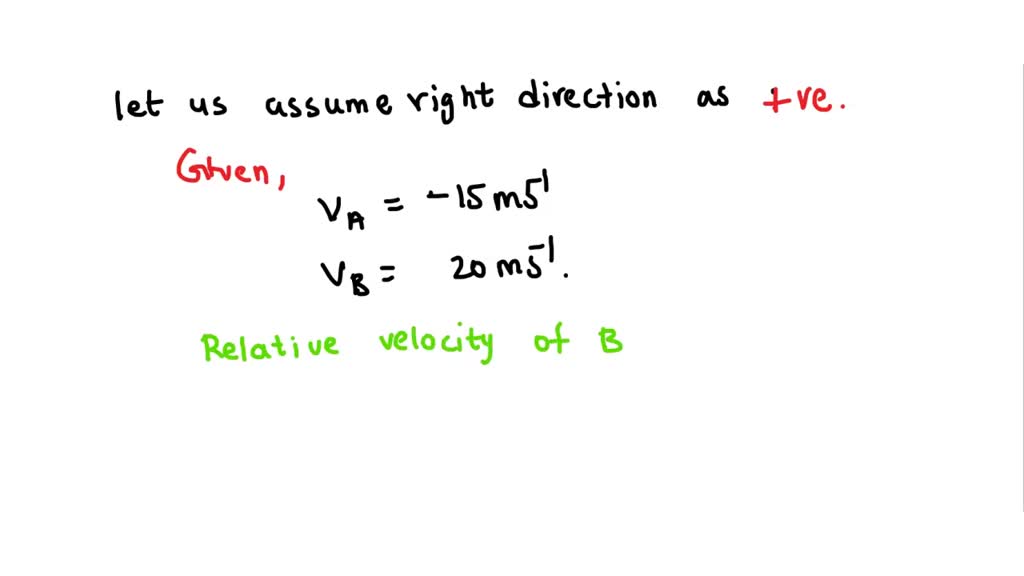 let us assume right direction as +ve.
Given,
V_A = -15 ms⁻¹
V_B = 20 ms⁻¹.
Relative velocity of B